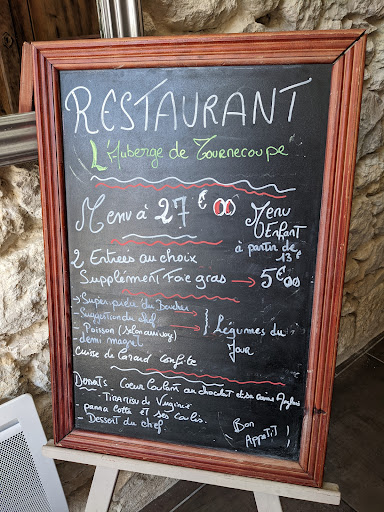 RESTAURANT
L'Auberge de Tournecoupe
Menu à 27€00
Menu
Enfant
à partir de
13€
2 Entrées au choix
Supplément Foie gras → 5€00
→ Super pièce du Boucher
- Suggestion du chef
- Poisson (selon arrivage)
- demi magret
Cuisse de canard confite
} Légumes du
Jour
DONATS Coeur coulant au chocolat et sa crème Anglaise
- Tiramisu de Virginie
panna cotta et ses coulis.
- Dessert du chef
Bon
Appétit !